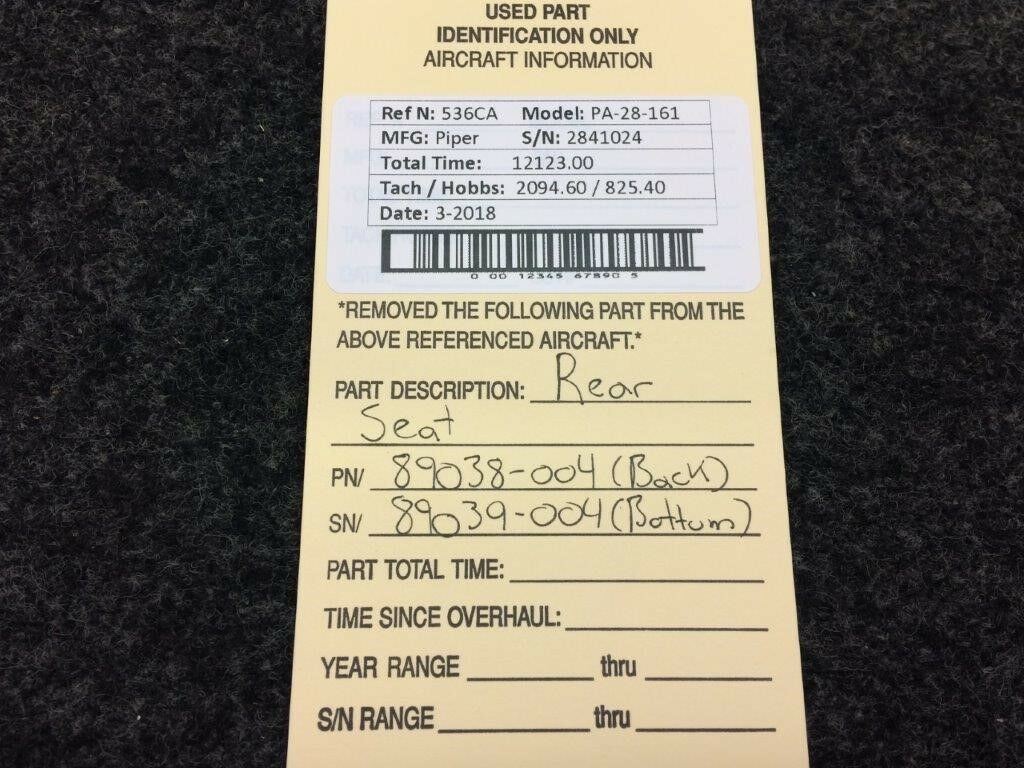 USED PART
IDENTIFICATION ONLY
AIRCRAFT INFORMATION
Ref N: 536CA Model: PA-28-161
MFG: Piper S/N: 2841024
Total Time: 12123.00
Tach / Hobbs: 2094.60 / 825.40
Date: 3-2018
0 00 12345 67890 5
*REMOVED THE FOLLOWING PART FROM THE
ABOVE REFERENCED AIRCRAFT.*
PART DESCRIPTION: Rear
Seat
PN/ 89038-004 (Back)
SN/ 89039-004 (Bottum)
PART TOTAL TIME:
TIME SINCE OVERHAUL:
YEAR RANGE thru
S/N RANGE thru